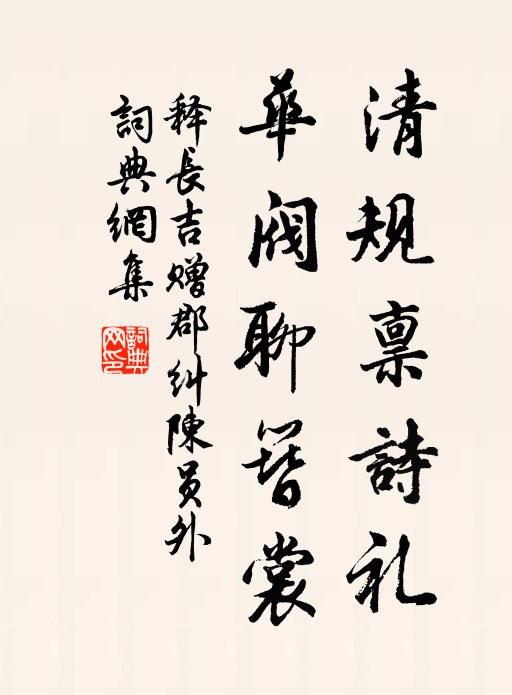 清規禀詩礼
華閥聊簪裳
释長吉贈郡糾陳员外
詞典網集
詞典網印